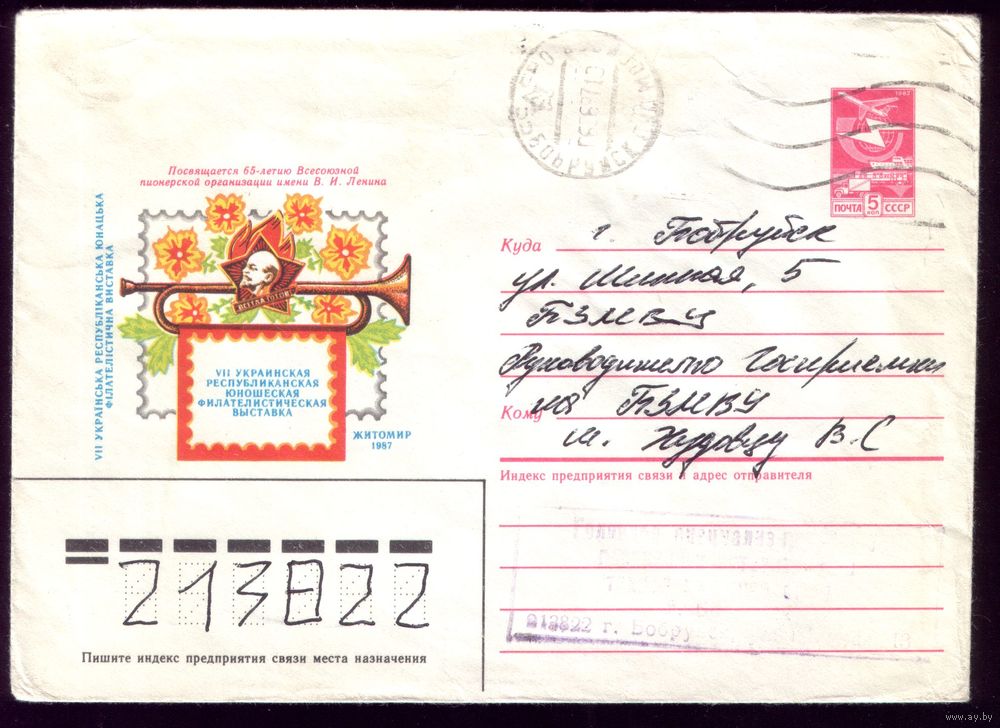 Посвящается 65-летию Всесоюзной
пионерской организации имени В. И. Ленина
VII УКРАЇНСЬКА РЕСПУБЛІКАНСЬКА ЮНАЦЬКА
ФІЛАТЕЛІСТИЧНА ВИСТАВКА
ВСЕГДА ГОТОВ!
VII УКРАИНСКАЯ
РЕСПУБЛИКАНСКАЯ
ЮНОШЕСКАЯ
ФИЛАТЕЛИСТИЧЕСКАЯ
ВЫСТАВКА
ЖИТОМИР
1987
1982
ПОЧТА 5 КОП СССР
Куда г. Бобруйск
ул. Шинная, 5
БЗМВУ
Руководителю Госприемки
на БЗМВУ
Кому
т. В. С
Индекс предприятия связи и адрес отправителя
213822 г. Бобру
213822
Пишите индекс предприятия связи места назначения
www.ay.by